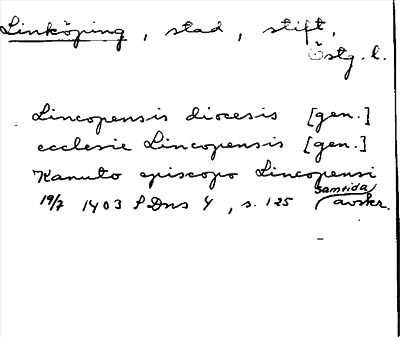 Linköping, stad, stift,
Östg. l.
Lincopensis diocesis [gen.]
ecclesie Lincopensis [gen.]
Kanuto episcopo Lincopensi
19/7 1403 SDns 4, s. 125 (samtida avskr.